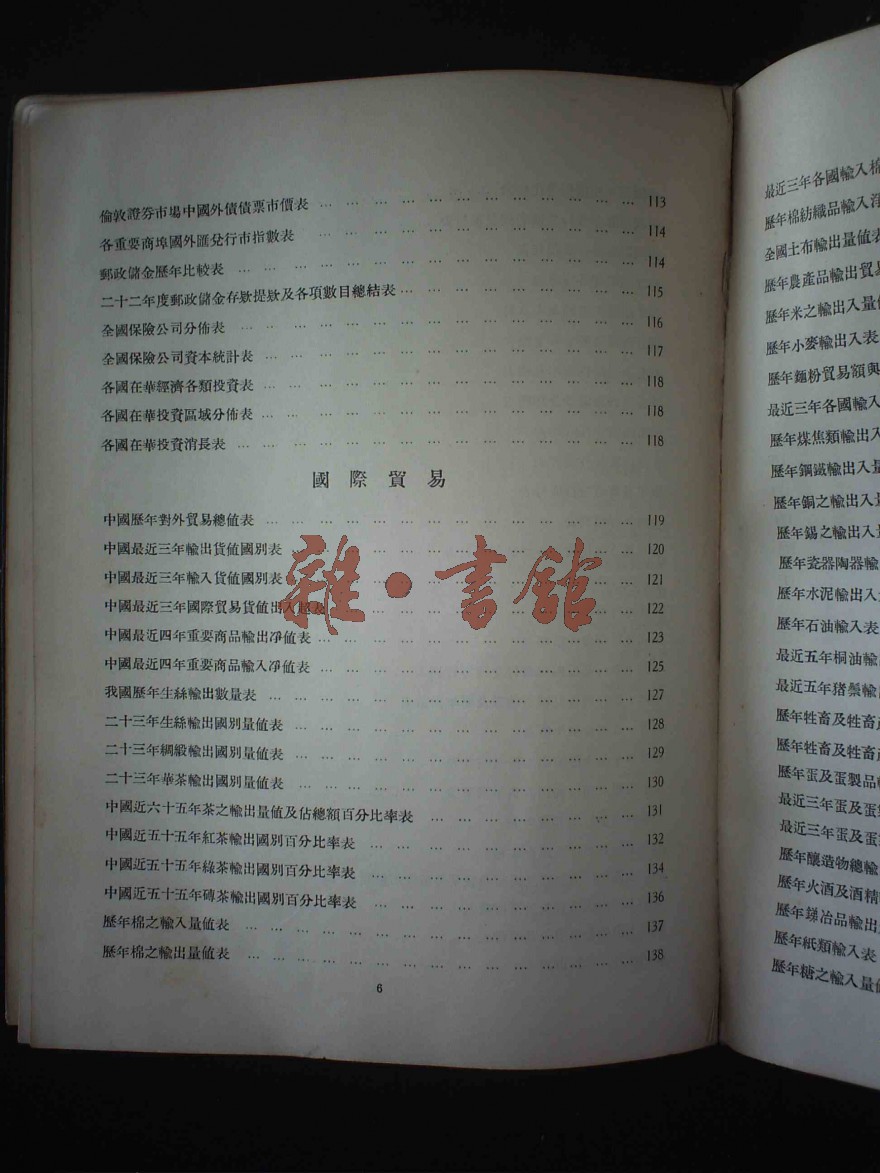 倫敦證劵市場中國外債債票市價表 … … … … … … … … … … … … 113
各重要商埠國外匯兌行市指數表 … … … … … … … … … … … … 114
郵政儲金歷年比較表 … … … … … … … … … … … … … … … 114
二十二年度郵政儲金存欵提欵及各項數目總結表 … … … … … … … … … 115
全國保險公司分佈表 … … … … … … … … … … … … … … … 116
全國保險公司資本統計表 … … … … … … … … … … … … … … 117
各國在華經濟各類投資表 … … … … … … … … … … … … … … 118
各國在華投資區域分佈表 … … … … … … … … … … … … … … 118
各國在華投資消長表 … … … … … … … … … … … … … … … 118
國際貿易
中國歷年對外貿易總値表 … … … … … … … … … … … … … … 119
中國最近三年輸出貨値國別表 … … … … … … … … … … … … … 120
中國最近三年輸入貨値國別表 … … … … … … … … … … … … … 121
中國最近三年國際貿易貨値出入超表 … … … … … … … … … … … 122
中國最近四年重要商品輸出凈値表 … … … … … … … … … … … … 123
中國最近四年重要商品輸入凈値表 … … … … … … … … … … … … 125
我國歷年生絲輸出數量表 … … … … … … … … … … … … … … 127
二十三年生絲輸出國別量値表 … … … … … … … … … … … … … 128
二十三年綢緞輸出國別量値表 … … … … … … … … … … … … … 129
二十三年華茶輸出國別量値表 … … … … … … … … … … … … … 130
中國近六十五年茶之輸出量値及佔總額百分比率表 … … … … … … … … 131
中國近五十五年紅茶輸出國別百分比率表 … … … … … … … … … … 132
中國近五十五年綠茶輸出國別百分比率表 … … … … … … … … … … 134
中國近五十五年磚茶輸出國別百分比率表 … … … … … … … … … … 136
歷年棉之輸入量値表 … … … … … … … … … … … … … … … 137
歷年棉之輸出量値表 … … … … … … … … … … … … … … … 138
6
雜·書館
最近三年各國輸入棉
歷年棉紡織品輸入淨
全國土布輸出量値表
歷年農產品輸出貿易
歷年米之輸出入量値
歷年小麥輸出入表
歷年麵粉貿易額與
最近三年各國輸入
歷年煤焦類輸出入
歷年鋼鐵輸出入量
歷年銅之輸出入量
歷年錫之輸出入量
歷年瓷器陶器輸
歷年水泥輸出入
歷年石油輸入表
最近五年桐油輸
最近五年猪鬃輸
歷年牲畜及牲畜產
歷年牲畜及牲畜產
歷年蛋及蛋製品輸
最近三年蛋及蛋
最近三年蛋及蛋
歷年釀造物總輸
歷年火酒及酒精
歷年鎔冶品輸出
歷年紙類輸入表
歷年糖之輸入量値